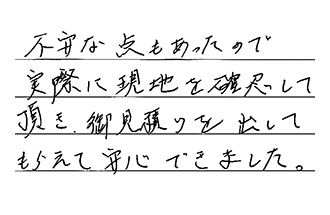 不安な点もあったので
実際に現地を確認して
頂き、御見積りを出して
もらえて安心できました。